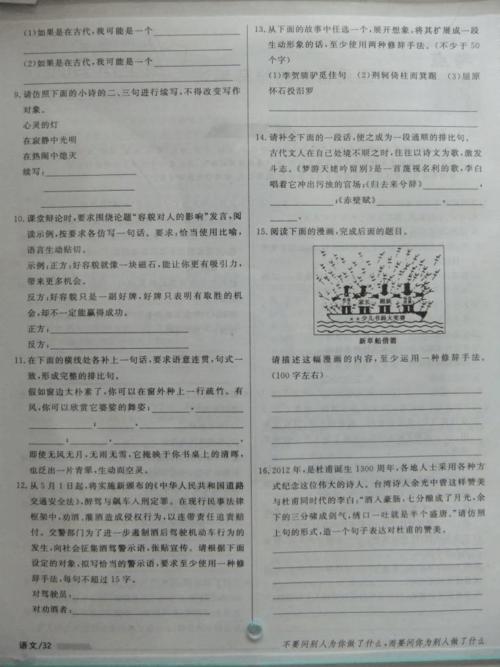 (1)如果是在古代,我可能是一个
(2)如果是在古代,我可能是一个
9.请仿照下面的小诗的二、三句进行续写,不得改变写作
对象。
心灵的灯
在寂静中光明
在热闹中熄灭
续写:
10.课堂辩论时,要求围绕论题“容貌对人的影响”发言,阅
读示例,按要求各仿写一句话。要求,恰当使用比喻,
语言生动贴切。
示例:正方:好容貌就像一块磁石,能让你更有吸引力,
带来更多机会。
反方:好容貌只是一副好牌,好牌只表明有取胜的机
会,却不一定能赢得成功。
正方:
反方:
11.在下面的横线处各补上一句话,要求语意连贯,句式一
致,形成完整的排比句。
假如窗边太朴素了,你可以在窗外种上一行疏竹。有
风,你可以欣赏它婆娑的舞姿;
即使无风无月,无雨无雪,它掩映于你书桌上的清晖,
也泛出一片青翠,生动而空灵。
12.从5月1日起,将实施新颁布的《中华人民共和国道路
交通安全法》,醉驾与飙车人刑定罪。在现行民事法律
框架中,劝酒、灌酒造成侵权行为,以连带责任追责赔
付。交警部门为了进一步遏制酒后驾驶机动车行为的
发生,向社会征集酒驾警示语,张贴宣传。请根据下面
设定的对象,拟写恰当的警示语,要求至少使用一种修
辞手法,每句不超过15字。
对驾驶员:
对劝酒者:
语文/32
13.从下面的故事中任选一个,展开想象,将其扩展成一段
生动形象的话,至少使用两种修辞手法。(不少于50
个字)
(1)李贺骑驴觅佳句 (2)荆轲倚柱而箕踞 (3)屈原
怀石投汨罗
14.请补全下面的一段话,使之成为一段通顺的排比句。
古代文人在自己处境不顺之时,往往以诗文为歌,激发
斗志。《梦游天姥吟留别》是一首蔑视名利的歌,李白
唱着它冲出污浊的官场;《归去来兮辞》
;《赤壁赋》
。
15.阅读下面的漫画,完成后面的题目。
少儿书画大奖赛
新草船借箭
请描述这幅漫画的内容,至少运用一种修辞手法。
(100字左右)
16.2012年,是杜甫诞生1300周年,各地人士采用各种方
式纪念这位伟大的诗人。台湾诗人余光中曾这样赞美
与杜甫同时代的李白:“酒入豪肠,七分酿成了月光,余
下的三分啸成剑气,绣口一吐就是半个盛唐。”请仿照
上句的形式,造一个句子表达对杜甫的赞美。
不要问别人为你做了什么,而要问你为别人做了什么